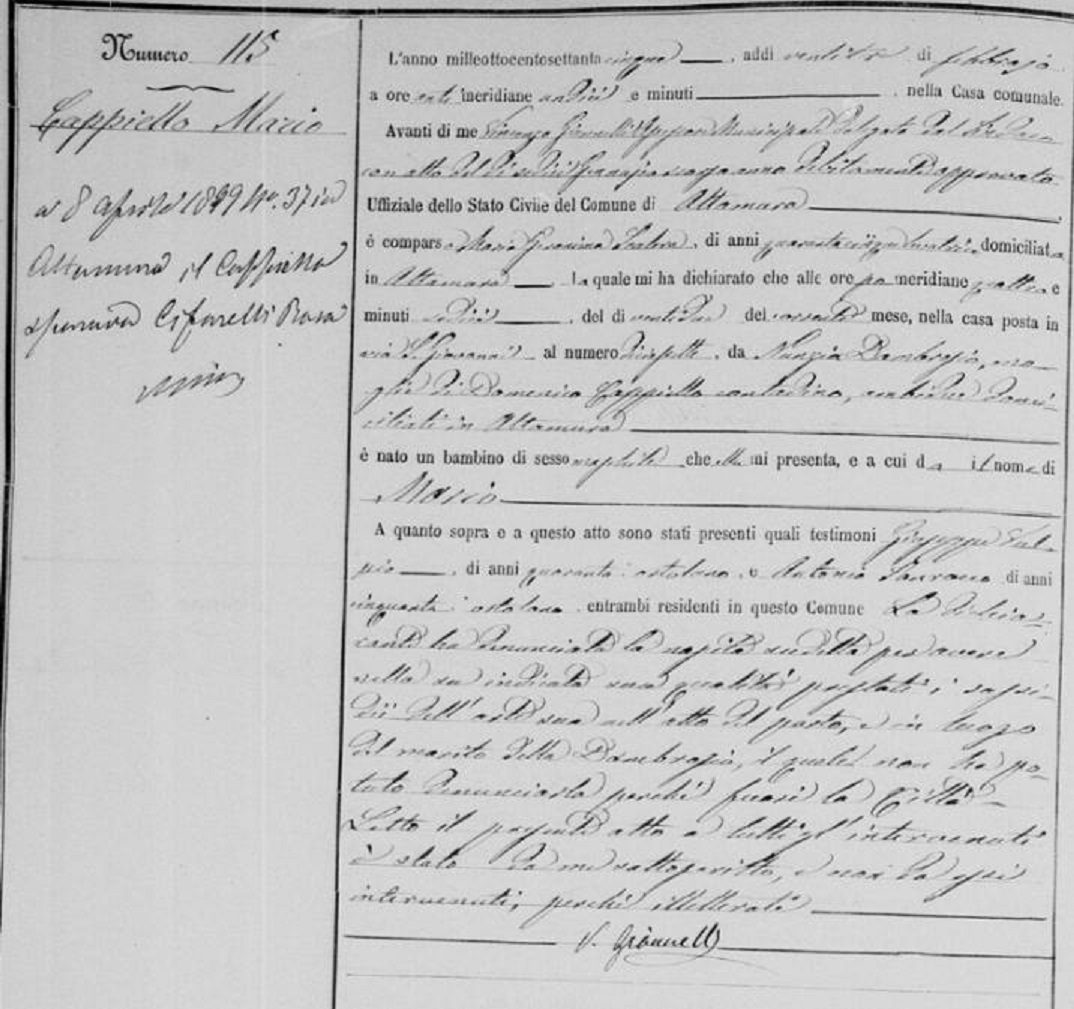 Numero 115
Cappiello Mario
a 8 aprile 1899 No. 37 in
Altamura il Cappiello
sposava Cifarelli Rosa
L'anno milleottocentosettantacinque, addi ventitre di febbrajo
a ore anti meridiane undici e minuti, nella Casa comunale.
Avanti di me Vincenzo Giannelli Assessore Municipale delegato dal Sindaco
con atto del di sedici Gennajo anno debitamente approvato
Uffiziale dello Stato Civile del Comune di Altamura
è comparsa Maria, di anni quarantacinque levatrice domiciliata
in Altamura la quale mi ha dichiarato che alle ore pomeridiane quattro e
minuti sedici, del di ventidue del corrente mese, nella casa posta in
via S. Giovanni al numero diciasette, da Nunzia Dambrosio, mo-
glie di Domenico Cappiello contadino, ambidue domi-
ciliati in Altamura
è nato un bambino di sesso maschile che ella mi presenta, e a cui da il nome di
Mario
A quanto sopra e a questo atto sono stati presenti quali testimoni Giuseppe
di anni quaranta ortolano e Antonio di anni
cinquanta ortolano entrambi residenti in questo Comune La dichia-
rante ha denunciata la nascita suddetta per avere
nella su indicata sua qualità prestati i sussi-
dii dell'arte sua nell'atto del parto, e in luogo
del marito della Dambrosio, il quale non ha po-
tuto denunciarla perchè fuori la Città
Letto il presente atto a tutti gl'intervenuti
è stato da me sottoscritto, e non da essi
intervenuti, perchè illetterati
V. Giannelli